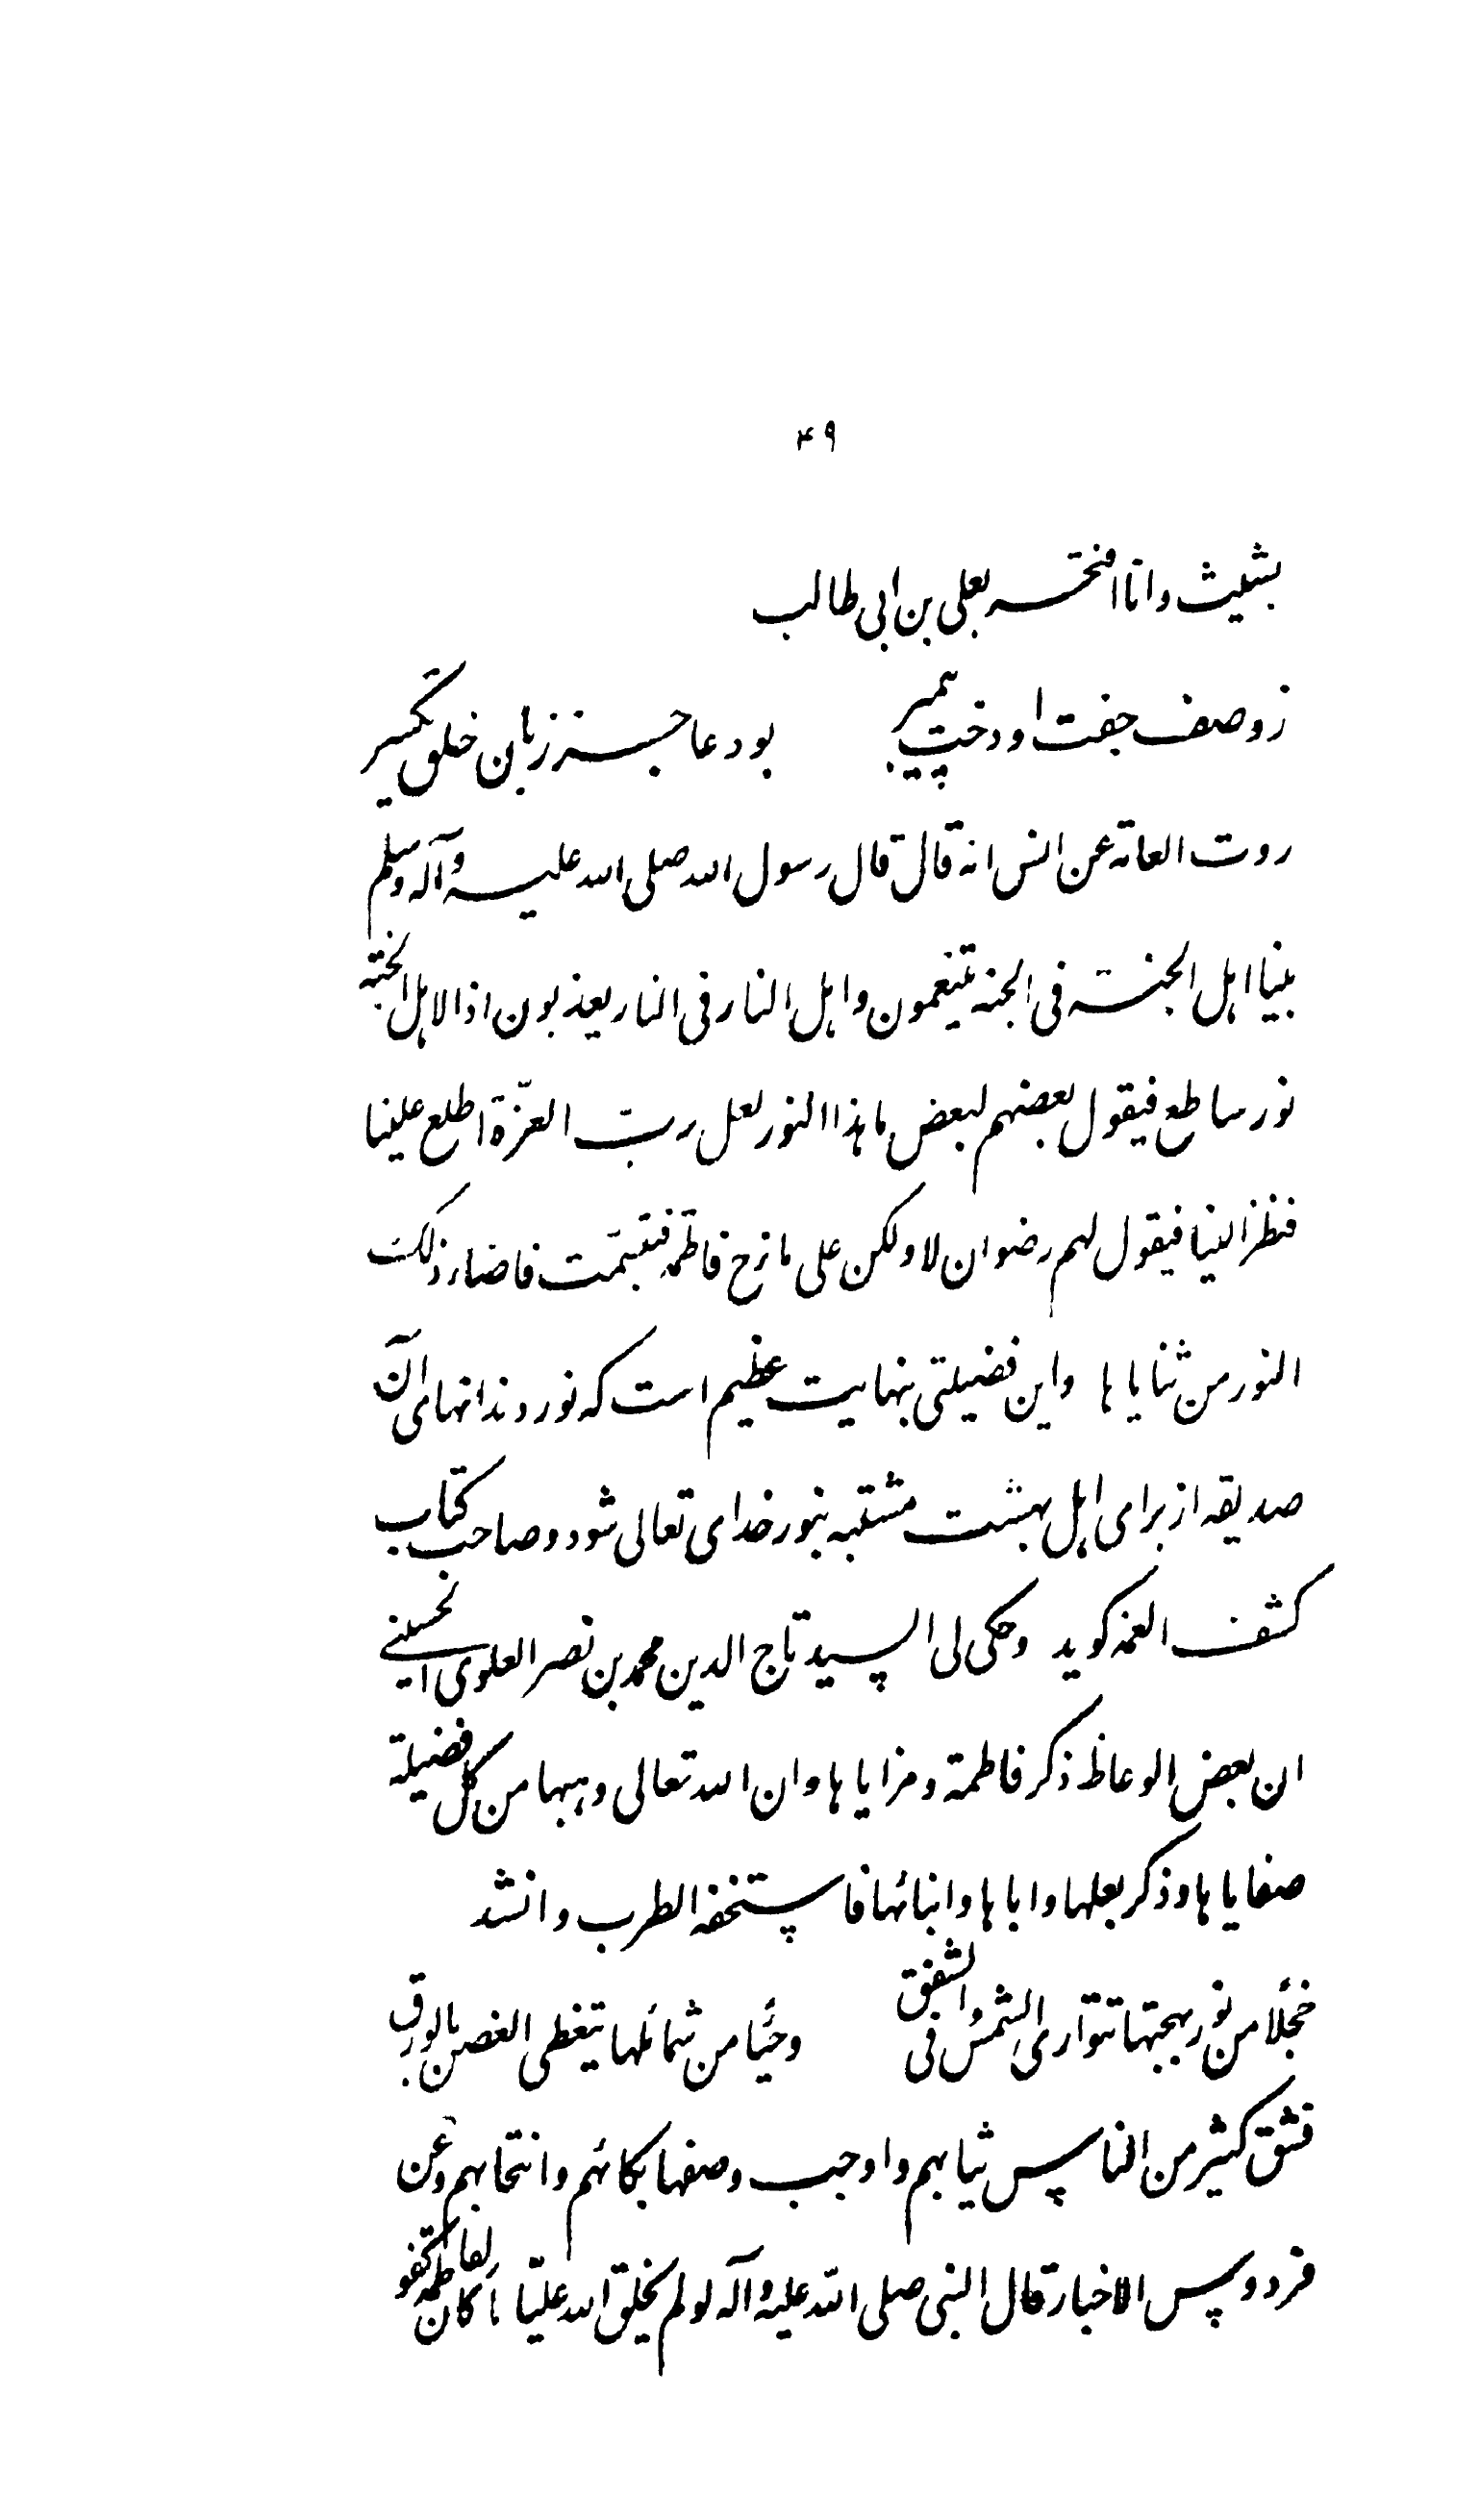 ۴۹
بشیث و انا افتخر بعلی بن ابی طالب
ز وصف جفت او دخت پیمبر بود عاجز زبان خلق یکسر
روت العامه عن انس انه قال قال رسول الله صلی الله علیه و آله و سلم
بینا اهل الجنه فی الجنه یتنعمون و اهل النار فی النار یعذبون اذا لاهل الجنة
نور ساطع فیقول بعضهم لبعض ما هذا النور لعل رب العزّة اطلع علینا
فنظر الینا فیقول لهم رضوان لا و لکن علی مازح فاطمة فتبسمت فاضاء ذلک
النور من ثنایاها و این فضیلتی بنهایت عظیم است که نور دندانهای آن
صدیقه از برای اهل بهشت مشتبه بنور خدای تعالی شود و صاحب کتاب
کشف الغمه کوید و حکی لی السید تاج الدین محمد بن نصر العلوی الحسینی
ان بعض الوعاظ ذکر فاطمة و مزایاها و ان الله تعالی وهبها من کل فضیلة
صفایاها و ذکر بعلها و اباها و ابنائها فاستخفه الطرب و انشد
خجلًا من نور بهجتها تتواری الشمس فی الشفق و حیًا من شمائلها یتغطی الغصن بالورق
فشق کثیر من الناس ثیابهم و اوجب وصفها بکائهم و انتحابهم و عن
فردوس الاخبار قال النبی صلی الله علیه و آله لو لم یخلق الله علیّا ما کان لفاطمة کفو